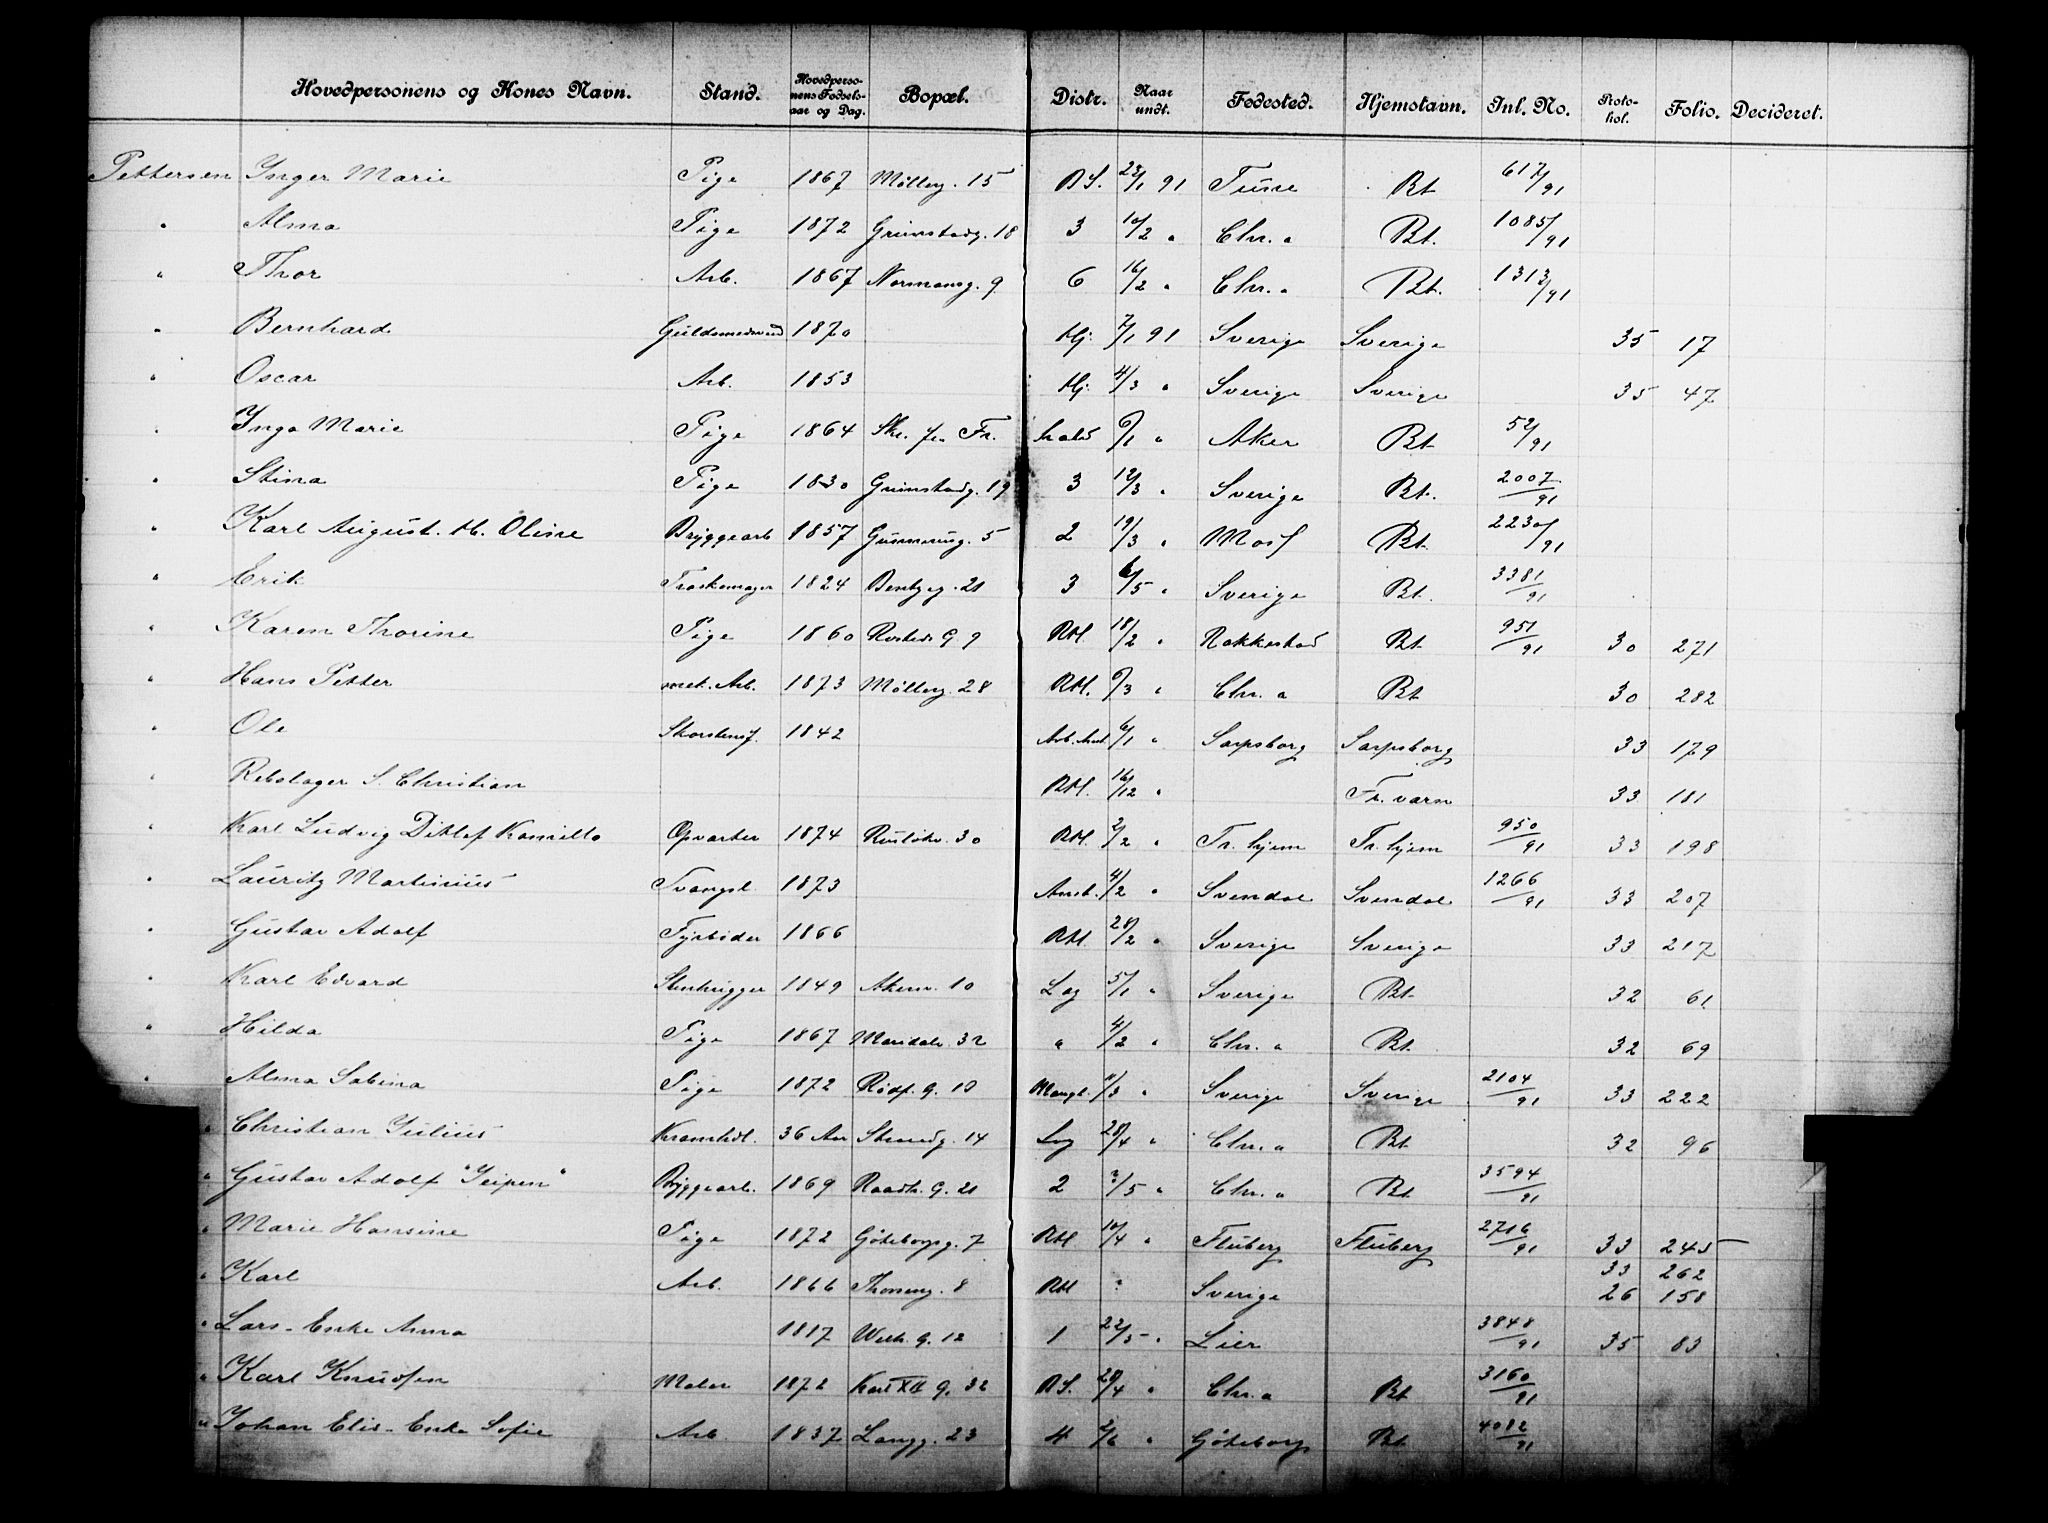 Hovedpersonens og Kones Navn. Stand. Hovedpersonens Fødselsaar og Dag. Bopæl. Distr. Naar undt. Fødested. Hjemstavn. Inl. No. Protokol. Folio. Decideret.
Pettersen Inger Marie Pige 1867 Møllerg. 15 B S. 28/1 91 Tune Bt 617/91
" Alma Pige 1872 Grimstadg. 18 3 10/2 " Chr.a Bt. 1085/91
" Thor Arb. 1867 Normansg. 9 6 16/2 " Chr.a Bt. 1313/91
" Bernhard Guldsmedsvend 1870 Hj. 7/1 91 Sverige Sverige 35 17
" Oscar Arb. 1853 Hj. 4/3 " Sverige Sverige 35 47
" Inga Marie Pige 1864 Fr. 6/1 " Aker Bt 52/91
" Stina Pige 1830 Grimstadg. 19 3 12/3 " Sverige Bt. 2007/91
" Karl August. H. Oline Bryggearb 1857 5 2 19/3 " Moss Bt. 2230/91
" Erik Træskomager 1824 21 3 6/5 " Sverige Bt. 3381/91
" Karen Thorine Pige 1860 Rosteds G 9 RM. 18/2 " Rakkestad Bt 951/91 30 271
" Hans Petter mek. Arb. 1873 Møllerg. 28 RM. 6/3 " Chr.a Bt 30 282
" Ole Skorstensf. 1842 Arb. Anst. 6/1 " Sarpsborg Sarpsborg 33 179
" Rebslager S. Christian RM. 16/12 " Fr. værn 33 181
" Karl Ludvig Ditlef Kamillo Opvarter 1874 30 RM. 2/2 " Fr. hjem Fr. hjem 950/91 33 198
" Lauritz Martinius Tvangsl. 1873 Amt. 4/2 " Svendal Svendal 1266/91 33 207
" Gustav Adolf Fyrbøder 1866 RM 28/2 " Sverige Sverige 33 217
" Karl Edvard Stenhugger 1849 Akersv. 10 Læg 5/1 " Sverige Bt. 32 61
" Hilda Pige 1867 Maridalsv. 32 " 4/2 " Chr.a Bt. 32 69
" Alma Sabina Pige 1872 Rødf. G. 10 11/3 " Sverige Sverige 2104/91 33 222
" Christian Julius Kramhdl. 36 Aar Strandg. 14 Læg 28/4 " Chr.a Bt 32 96
" Gustav Adolf "Jeipen" Bryggearb. 1869 Raadh. G. 21 2 2/5 " Chr.a Bt 3594/91
" Marie Hansine Pige 1872 Göteborgg. 7 RM 10/4 " Fluberg Fluberg 2716/91 33 245
" Karl Arb. 1866 8 RM " Sverige 33 262
26 158
" Lars - Enke Anna 1817 Welh. G. 12 1 22/5 " Lier 3848/91 35 83
" Karl Knudsen Maler 1872 Karl XII G. 32 B S. 28/4 " Chr.a Bt 3160/91
" Johan Elis - Enke Sofie Arb. 1837 Langg. 23 4 2/6 " Göteborg Bt 4082/91